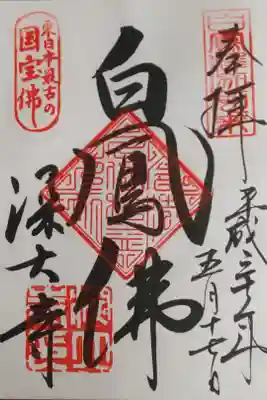 奉拝
平成三十年
五月十七日
白鳳佛
深大寺
東日本最古の
国宝佛